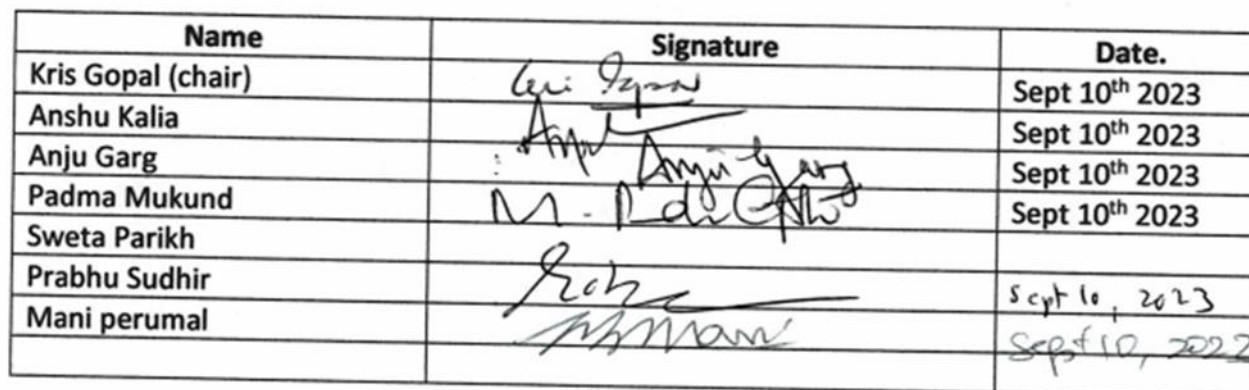 Name Signature Date.
Kris Gopal (chair) Sept 10th 2023
Anshu Kalia Sept 10th 2023
Anju Garg Anju Garg Sept 10th 2023
Padma Mukund M. Sept 10th 2023
Sweta Parikh
Prabhu Sudhir Sept 10, 2023
Mani perumal Sept 10, 2022